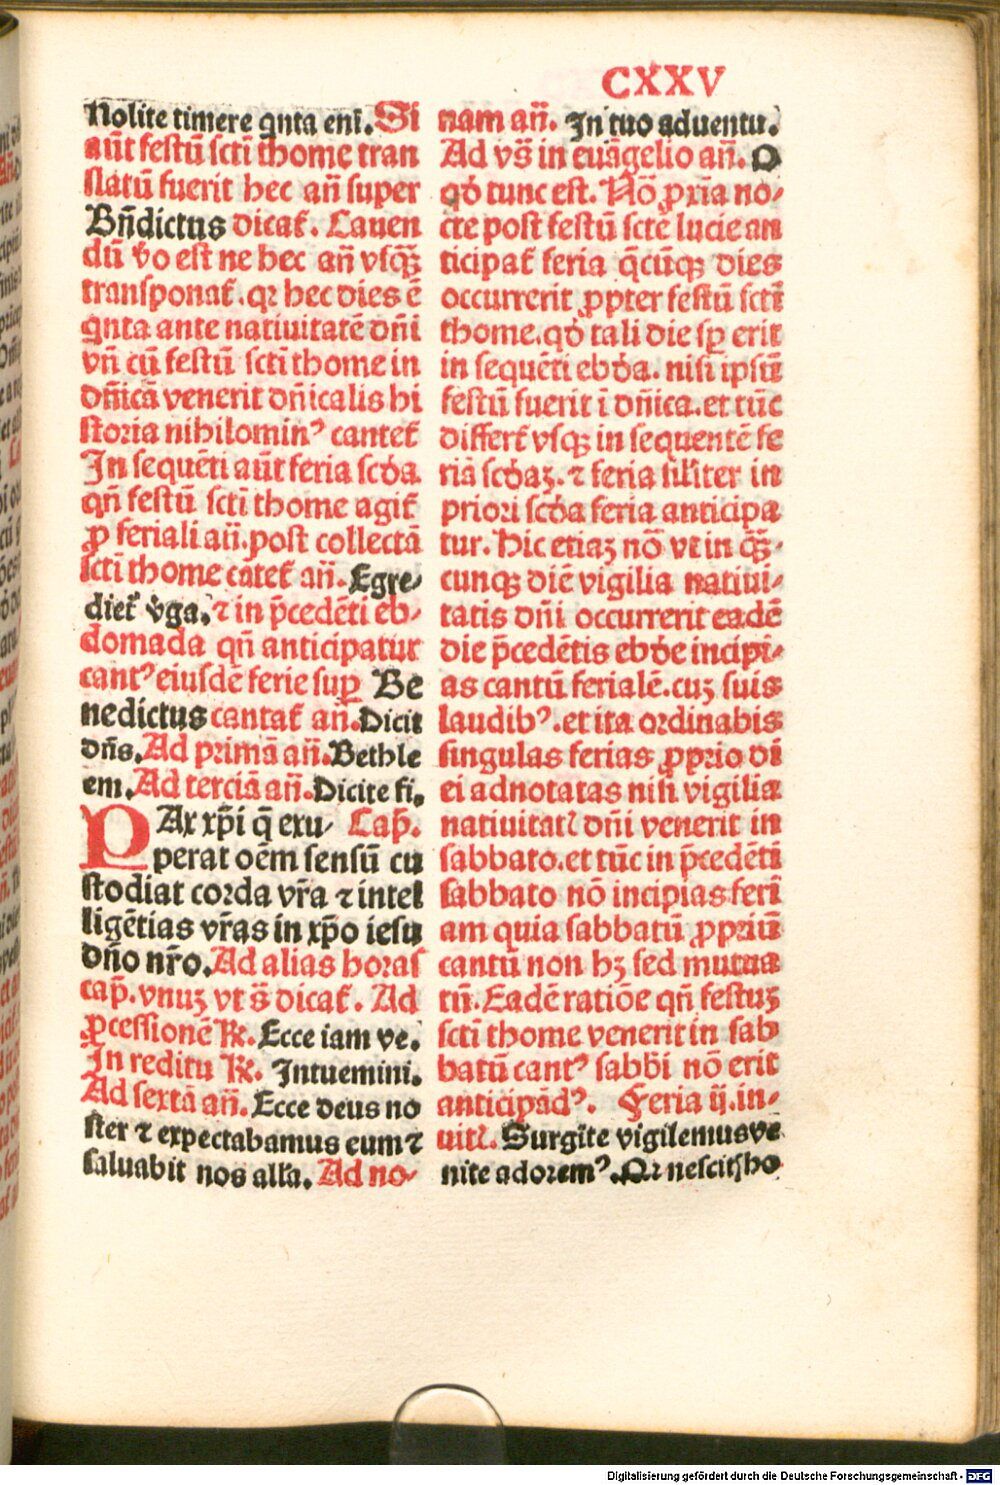 CXXV
Nolite timere qnta enī. Si
aūt festū scti thome tran
slatū fuerit hec an̄ super
Bn̄dictus dicat̄. Cauen
dū v̄o est ne hec an̄ vsq̄ꝫ
transponat̄. qꝛ hec dies ē
qnta ante natiuitatē dn̄i
vn̄ cū festū scti thome in
dn̄icā venerit dn̄icalis hi
storia nihilominꝰ cantet̄
In sequēti aūt feria scd̄a
qn̄ festū scti thome agit̄
ꝓ feriali an̄. post collectā
scti thome cātet̄ an̄. Egre⸗
diet̄ v̄ga. ⁊ in p̄cedēti eb⸗
domada qn̄ anticipatur
cantꝰ eiusdē ferie suꝑ Be
nedictus cantat̄ an̄. Dicit
dn̄s. Ad primā an̄. Bethle
em. Ad terciā an̄. Dicite fi.
PAx xp̄i q̄ exu⸗ Cap̄.
perat oēm sensū cu
stodiat corda vr̄a ⁊ intel
ligētias vr̄as in xp̄o iesu
dn̄o nr̄o. Ad alias horas
cap̄. vnuꝫ vt s̄ dicat̄. Ad
ꝓcessionē ℟. Ecce iam ve.
In reditu ℟. Intuemini.
Ad sextā an̄. Ecce deus no
ster ⁊ expectabamus eum ⁊
saluabit nos alla. Ad no⸗
nam an̄. In tuo aduentu.
Ad vs̄ in euāgelio an̄. O
qd̄ tunc est. Nō ꝓpria no⸗
cte post festū scte lucie an
ticipat̄ feria q̄cūqꝫ dies
occurrerit ꝓpter festū scti
thome. qd̄ tali die sꝑ erit
in sequēti ebd̄a. nisi ipsū
festū fuerit ī dn̄ica. et tūc
differt̄ vsqꝫ in sequentē fe
riā scd̄aꝫ. ⁊ feria silr̄iter in
priori scd̄a feria anticipa
tur. Hic etiaꝫ nō vt in q̄ꝫ⸗
cunqꝫ diē vigilia natiui⸗
tatis dn̄i occurrerit eadē
die p̄cedētis ebd̄e incipi⸗
as cantū ferialē. cuꝫ suis
laudibꝰ. et ita ordinabis
singulas ferias ꝓprio di
ei adnotatas nisi vigilia
natiuitatꝭ dn̄i venerit in
sabbato. et tūc in p̄cedēti
sabbato nō incipias feri
am quia sabbatū ꝓpriū
cantū non hꝫ sed mutua
tū. Eadē ratiōe qn̄ festuꝫ
scti thome venerit in sab
batū cantꝰ sabbi nō erit
anticipādꝰ. Feria ij. in⸗
uitꝭ. Surgite vigilemus ve
nite adoremꝰ. Qꝛ nescitꝭ ho
Digitalisierung gefördert durch die Deutsche Forschungsgemeinschaft - DFG